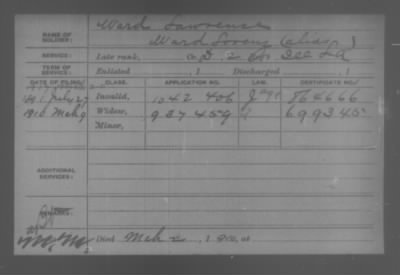 NAME OF SOLDIER: Ward Lawrence
Ward Lorenz (alias)
SERVICE: Late rank, Co. D. 2 Regt
TERM OF SERVICE: Enlisted , 1 Discharged , 1
DATE OF FILING. CLASS. APPLICATION NO. LAW. CERTIFICATE NO.
1891 July 27 Invalid, 1042 406 864666
1910 Mch 9 Widow, 937459 699345
Minor,
ADDITIONAL SERVICES:
REMARKS:
Died Mch 2, 1910, at